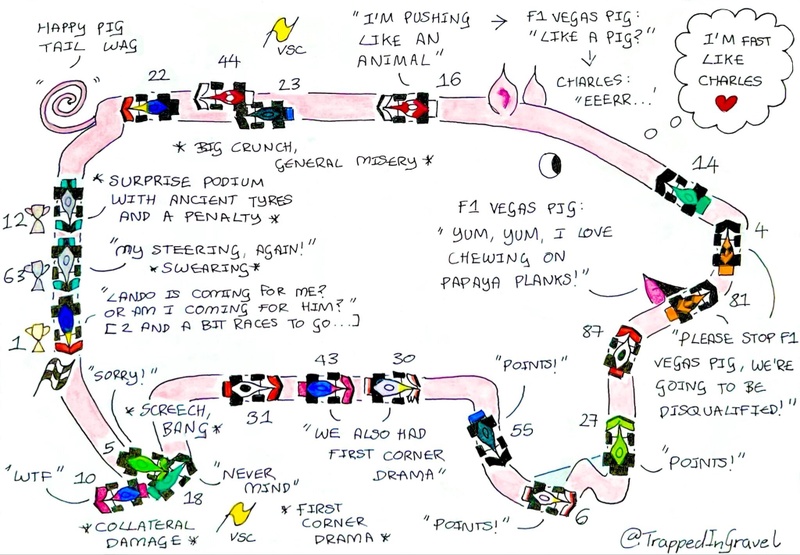 HAPPY PIG
TAIL WAG
22
44
VSC
23
"I'M PUSHING
LIKE AN
ANIMAL"
16
F1 VEGAS PIG:
"LIKE A PIG?"
CHARLES:
"EEERR...'
I'M FAST
LIKE
CHARLES
* BIG CRUNCH,
GENERAL MISERY *
14
4
* SURPRISE PODIUM
WITH ANCIENT TYRES
AND A PENALTY *
12
"MY STEERING, AGAIN!"
* SWEARING *
63
"LANDO IS COMING FOR ME?
OR AM I COMING FOR HIM?"
[2 AND A BIT RACES TO GO...]
1
F1 VEGAS PIG:
"YUM, YUM, I LOVE
CHEWING ON
PAPAYA PLANKS!"
81
"PLEASE STOP F1
VEGAS PIG, WE'RE
GOING TO BE
DISQUALIFIED!"
87
27
"POINTS!"
6
"POINTS!"
55
"POINTS!"
30
43
31
"WE ALSO HAD
FIRST CORNER
DRAMA"
"SORRY!"
* SCREECH,
BANG *
5
"WTF"
10
18
"NEVER
MIND"
* COLLATERAL
DAMAGE *
VSC
* FIRST
CORNER
DRAMA *
@TrappedInGravel